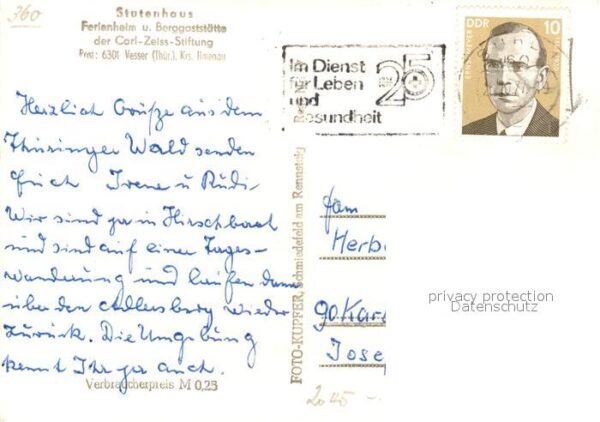 360
Stutenhaus
Ferienheim u. Berggaststätte
der Carl-Zeiss-Stiftung
Post: 6301 Vesser (Thür.), Krs. Ilmenau
Im Dienst
für Leben
und
Gesundheit
25
DDR
10
Herzlich Grüße aus dem
Thüringer Wald senden
Euch Irene u Rudi
Wir sind ja in Hirschbach
und sind auf einer Tages-
wanderung und laufen dann
über den Adlersberg wieder
zurück. Die Umgebung
kennt Ihr ja auch.
Verbraucherpreis M 0,25
FOTO-KUPFER, Schmiedefeld am Rennsteig
Fam
Herb
90 Kar
Jose
privacy protection
Datenschutz